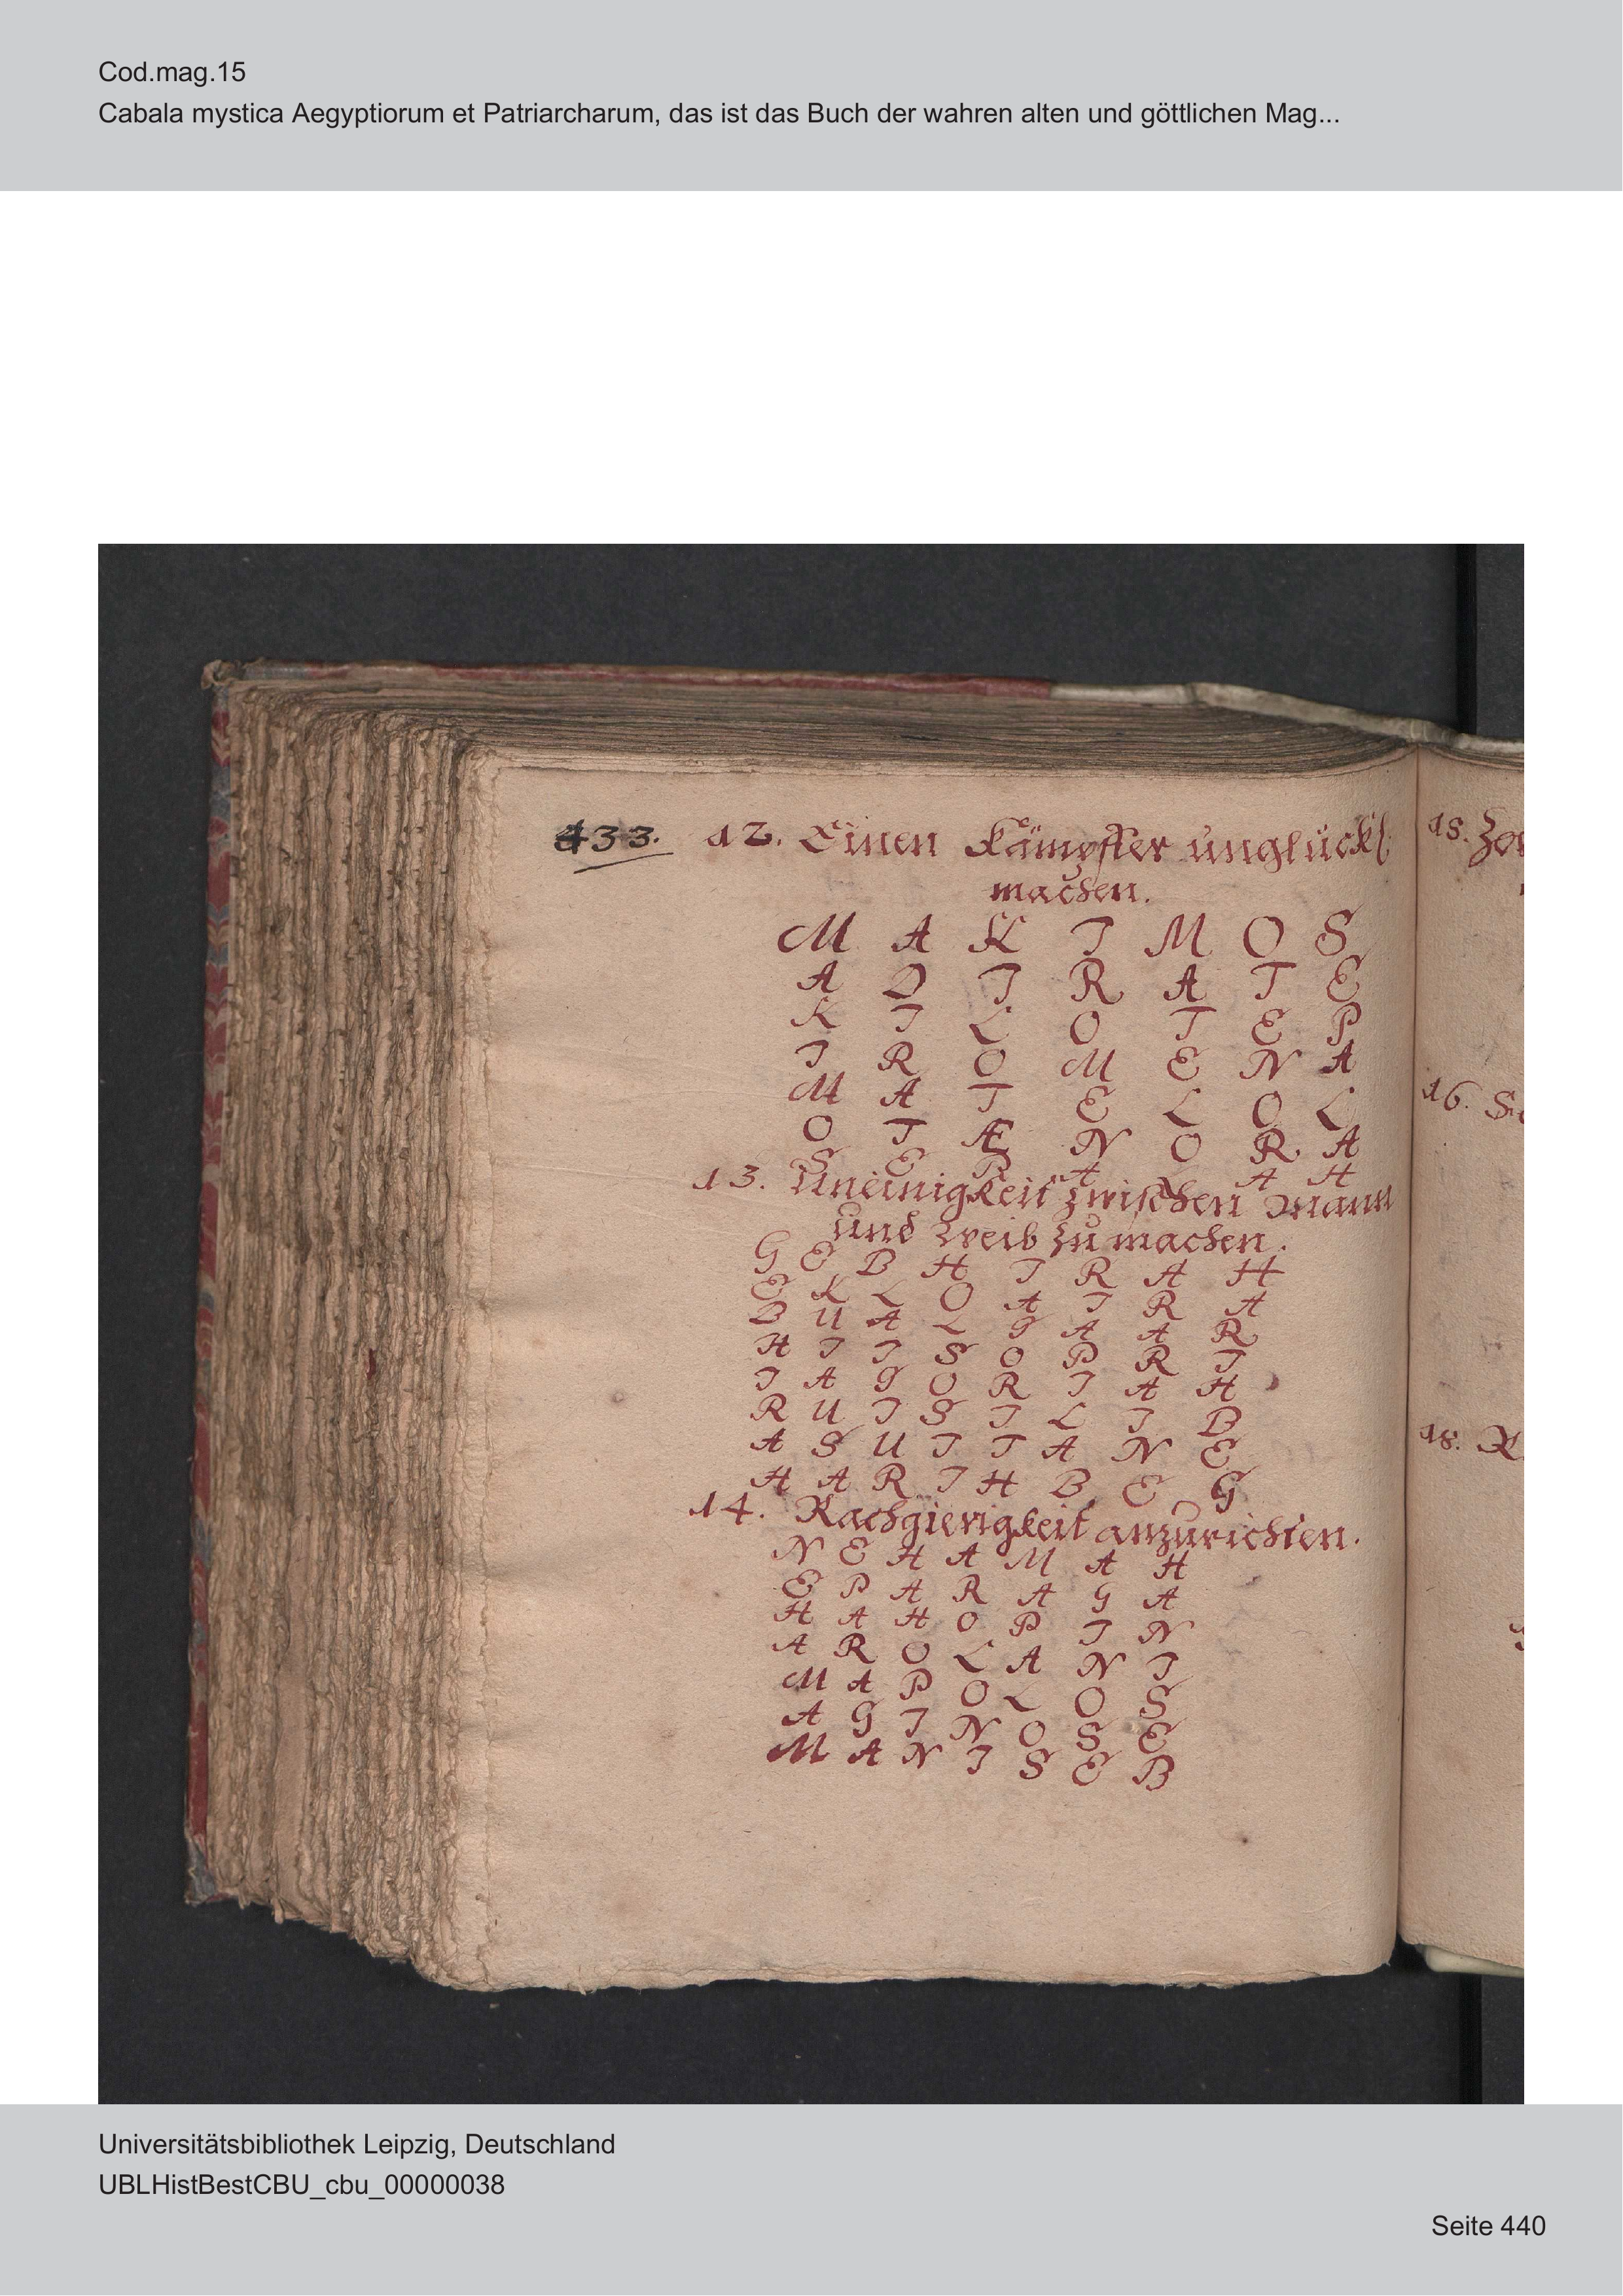 Cod.mag.15
Cabala mystica Aegyptiorum et Patriarcharum, das ist das Buch der wahren alten und göttlichen Mag...
433. 12. Einen Kämpffer unglückl
machen.
M A K I M O S
A D I R A T E
K I L O T E P
I R O M E N A
M A T E L O L
O T Æ N O R A
S E P A L A H
13. Uneinigkeit zwischen Mann
und Weib zu machen.
G E B H I R A H
E K L O A I R A
B U A L G A A R
H I I S O P R I
I A G O R I A H
R U I S I L I B
A S U I T A N E
H A R I H B E G
14. Rachgierigkeit anzurichten.
N E H A M A H
E P A R A G A
H A H O P I N
A R O L A N I
M A P O L O S
A G I N O S E
M A N I S E B
15.
16.
18.
Universitätsbibliothek Leipzig, Deutschland
UBLHistBestCBU_cbu_00000038
Seite 440